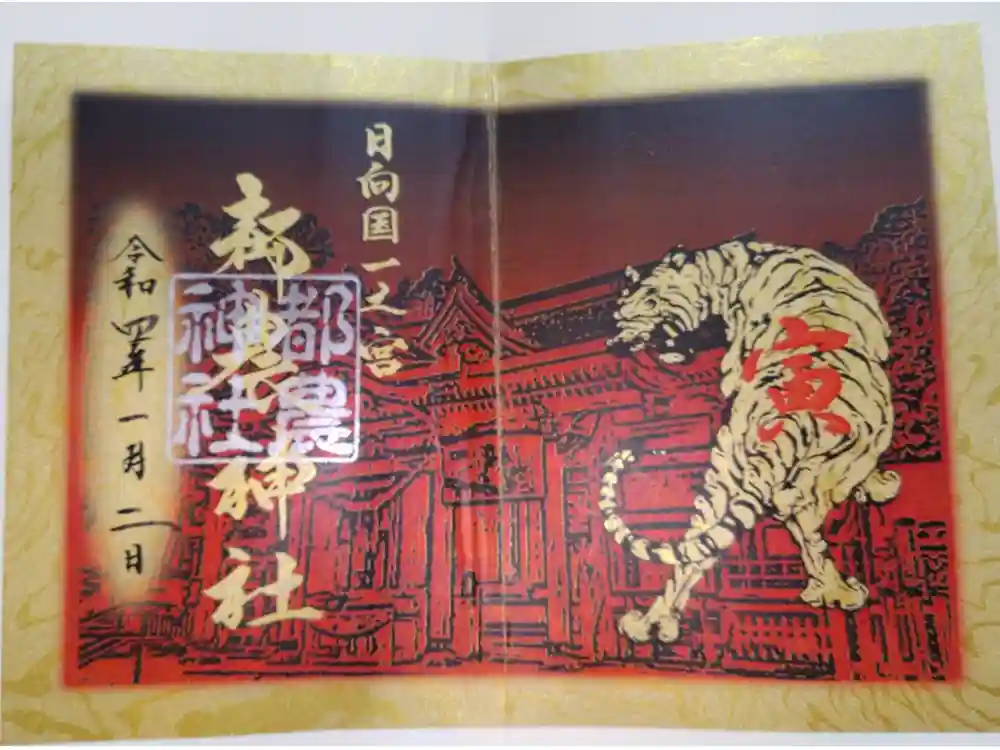 寅
日向国一之宮
都農神社
都農
神社
令和四年一月二日